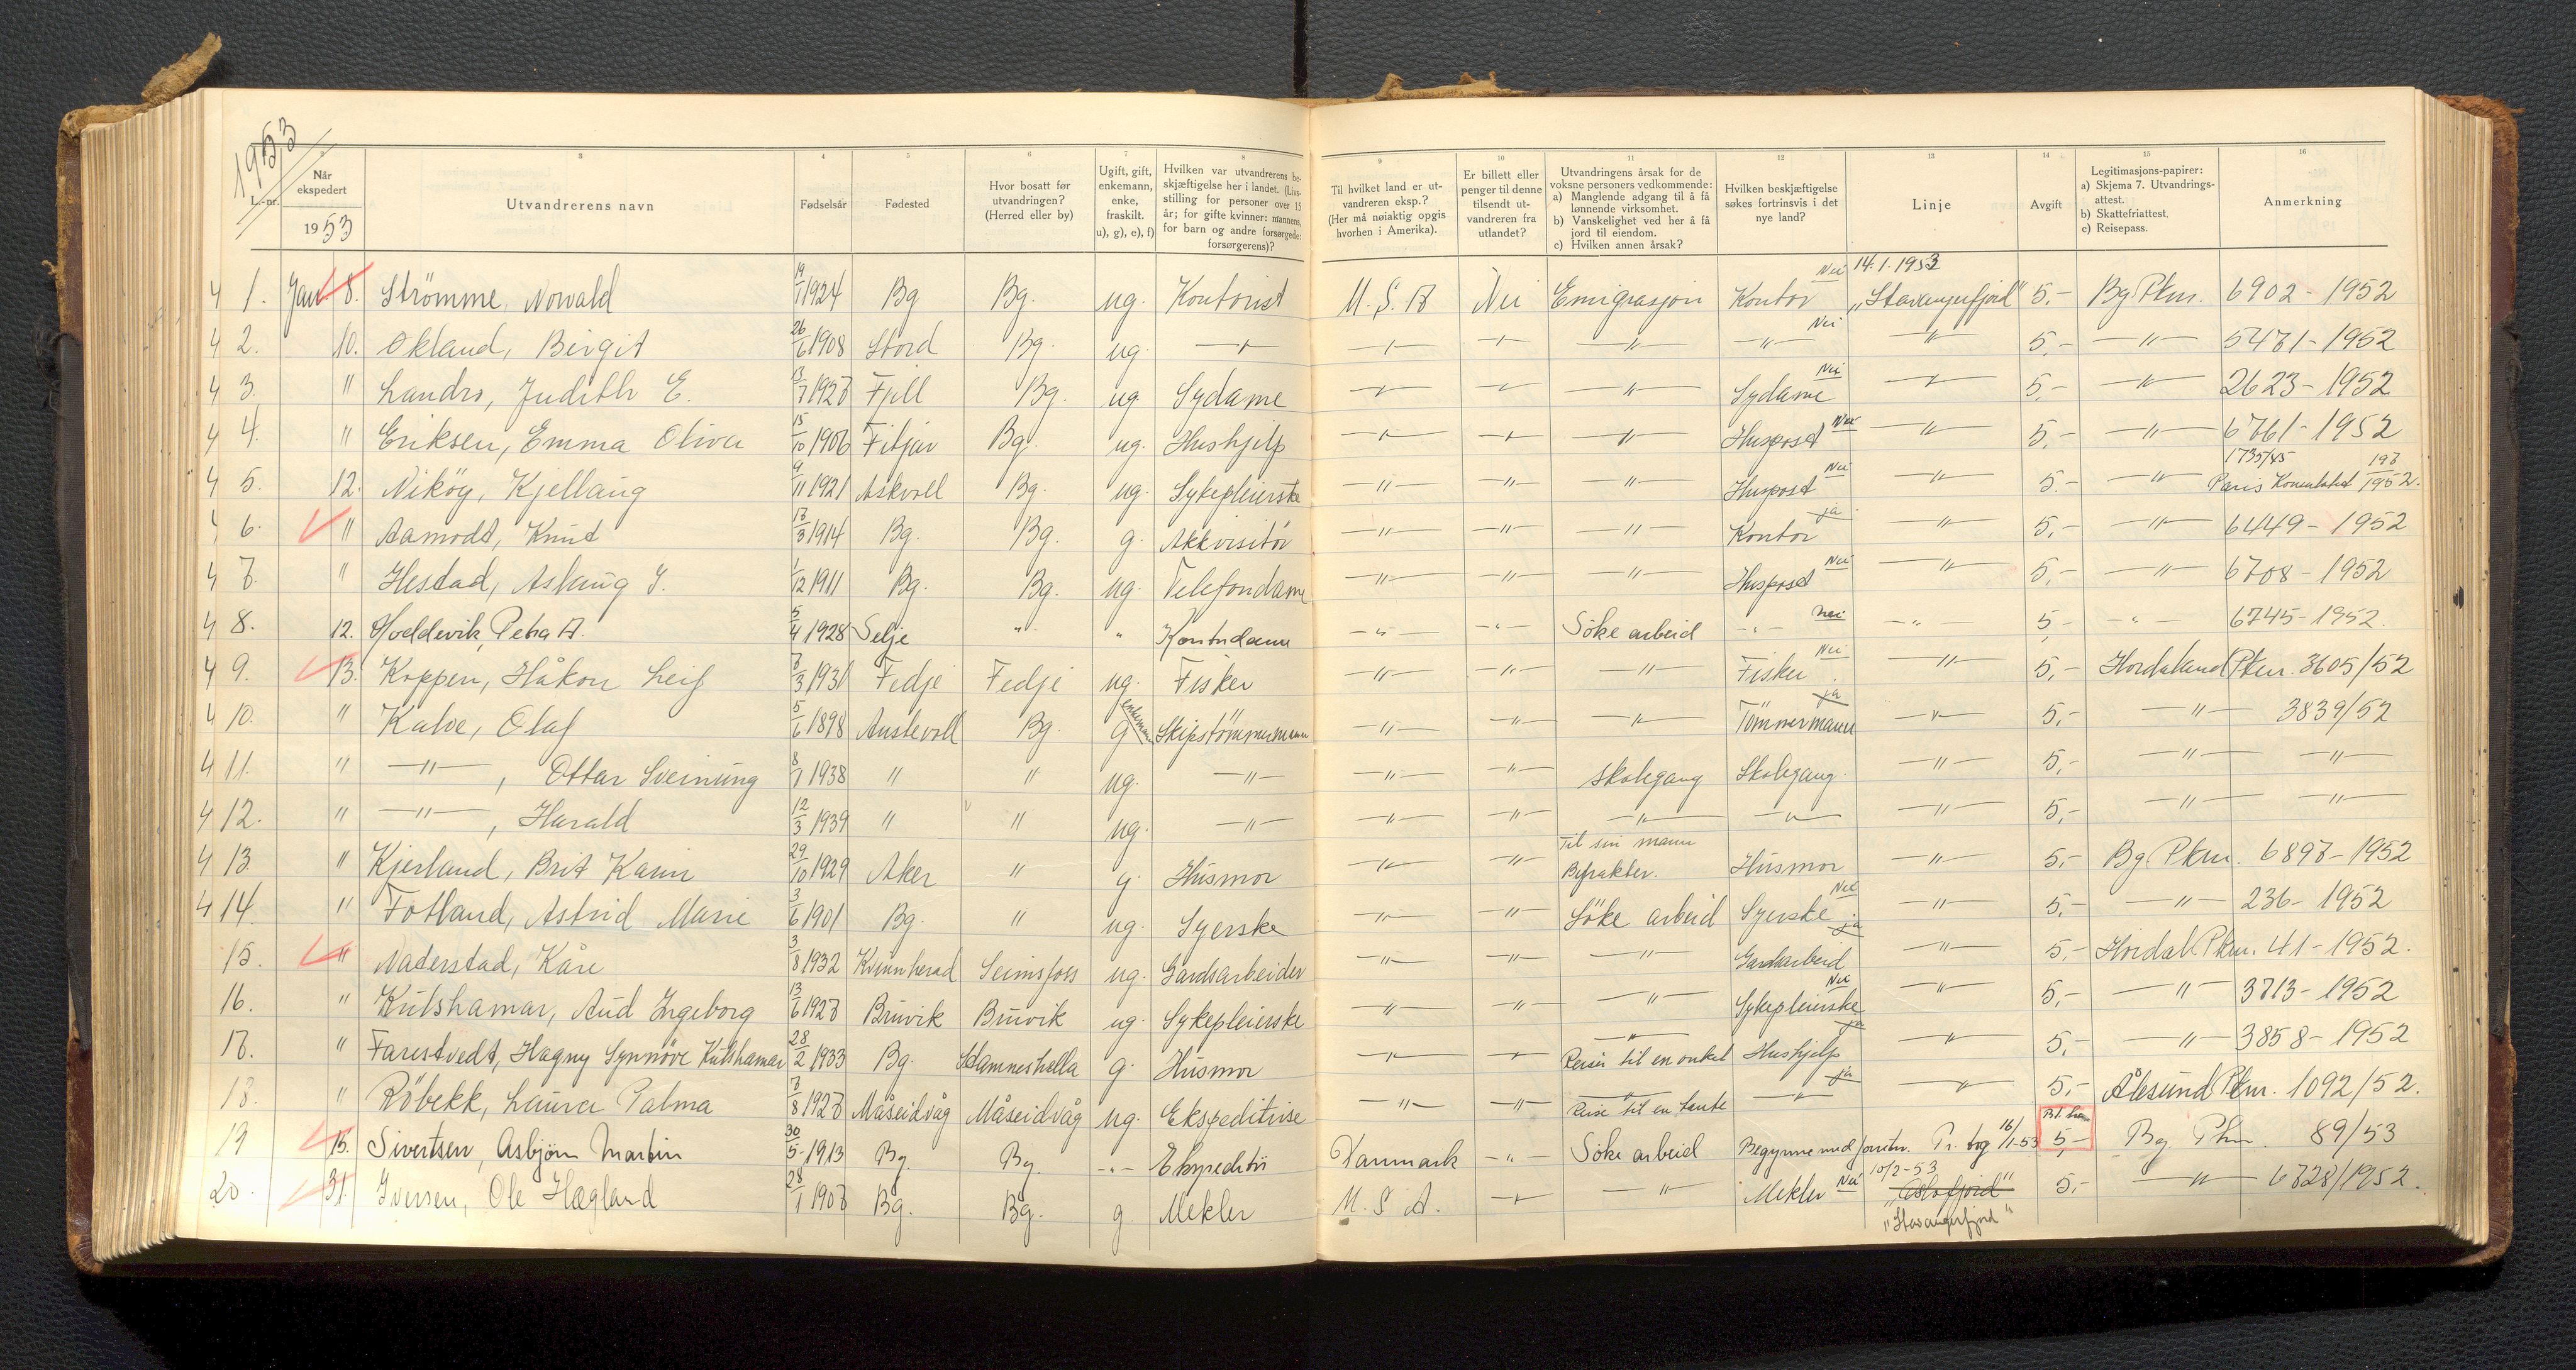 1953
L.-nr.
2 3 4 5 6 7 8 9 10 11 12 13 14 15 16
Når ekspedert 1953
Utvandrerens navn
Fødselsår
Fødested
Hvor bosatt før utvandringen? (Herred eller by)
Ugift, gift, enkemann, enke, fraskilt. u), g), e), f)
Hvilken var utvandrerens beskjæftigelse her i landet. (Livsstilling for personer over 15 år; for gifte kvinner: mannens, for barn og andre forsørgede: forsørgerens)?
Til hvilket land er utvandreren eksp.? (Her må nøiaktig opgis hvorhen i Amerika).
Er billett eller penger til denne tilsendt utvandreren fra utlandet?
Utvandringens årsak for de voksne personers vedkommende: a) Manglende adgang til å få lønnende virksomhet. b) Vanskelighet ved her å få jord til eiendom. c) Hvilken annen årsak?
Hvilken beskjæftigelse søkes fortrinsvis i det nye land?
Linje
Avgift
Legitimasjons-papirer: a) Skjema 7. Utvandringsattest. b) Skattefriattest. c) Reisepass.
Anmerkning
4 1. Jan. 8. Strömme, Norvald 19/1 1924 Bg Bg. ug. Kontorist U.S.A Nei Emigrasjon Kontor Nei 14.1.1953 "Stavangerfjord" 5,- Bg Pkm. 6902 - 1952
4 2. 10. Økland, Birgit 26/6 1908 Stord Bg. ug. —"— —"— —"— —"— —"— Nei —"— 5,- —"— 5471 - 1952
4 3. " Landro, Judith E. 13/7 1927 Fjell Bg. ug. Sydame —"— —"— —"— Sydame Nei —"— 5,- —"— 2623 - 1952
4 4. " Eriksen, Emma Oliva 15/10 1906 Fitjar Bg. ug. Hushjelp —"— —"— —"— Huspost Nei —"— 5,- —"— 6761 - 1952
4 5. 12. Nikøy, Kjellaug 9/11 1921 Askvoll Bg. ug. Sykepleierske —"— —"— —"— Huspost Nei —"— 5.- —"— 1735/45 Paris 197 1952.
4 6. " Aamodt, Knut 17/3 1914 Bg. Bg. g. Akkvisitör —"— —"— —"— Kontor ja —"— 5,- —"— 6449 - 1952
4 7. " Hestad, Aslaug J. 1/12 1911 Bg. Bg. ug. Telefondame —"— —"— —"— Huspost Nei —"— 5,- —"— 6708 - 1952
4 8. 12. Hoddevik, Petra A. 5/4 1928 Selje " " Kontordame —"— —"— Söke arbeid —"— nei —"— 5,- —"— 6745 - 1952.
4 9. 13. Koppen, Håkon Leif 7/3 1931 Fedje Fedje ug. Fisker —"— —"— —"— Fisker Nei —"— 5,- Hordaland Pkm. 3605/52
4 10. " Kalve, Olaf 5/6 1898 Austevoll Bg. g enkemann Skipstömmermann —"— —"— —"— Tömmermann ja —"— 5,- —"— 3839/52
4 11. " —"—, Ottar Sveinung 8/1 1938 " " ug. —"— —"— —"— skolegang Skolegang —"— 5,- —"— —"—
4 12. " —"—, Harald 12/3 1939 " " ug. —"— —"— —"— —"— —"— —"— 5,- —"— —"—
4 13. " Kjerland, Brit Karin 29/10 1929 Aker " g. Husmor —"— —"— Til sin mann Befrakter. Husmor —"— 5,- Bg. Pkm. 6897 - 1952
4 14. " Fotland, Astrid Marie 3/6 1901 Bg. " ug. Syerske —"— —"— Söke arbeid Syerske Nei —"— 5,- —"— 236 - 1952
15. " Naderstad, Kåre 3/8 1932 Kvinnherad Seimsfoss ug. Gardsarbeider —"— —"— —"— Gardsarbeid ja —"— 5,- Hordal. Pkm. 41 - 1952.
16. " Kulshamar, Aud Ingeborg 13/6 1927 Bruvik Bruvik ug. Sykepleierske —"— —"— —"— Sykepleierske Nei —"— 5,- —"— 3713 - 1952
17. " Farestvedt, Hagny Synnöve Kulshamar 28/2 1933 Bg. Stamneshella g. Husmor —"— —"— —"— Reiser til en onkel Hushjelp ja —"— 5,- —"— 3858 - 1952
18. " Röbekk, Laura Palma 7/8 1927 Måseidvåg Måseidvåg ug. Ekspeditrise —"— —"— —"— Reise til en tante —"— ja —"— 5,- Ålesund Pkm. 1092/52.
19 15. Sivertsen, Asbjörn Martin 30/5 - 1913 Bg Bg. —"— Ekspeditör Danmark —"— Söke arbeid Begynne med Pr. tog 16/1-53 5,- Bg. Pkm. 89/53
20. 31. Iversen, Ole Hægland 28/1 1907 Bg. Bg. g Mekler U.S.A. —"— —"— Mekler Nei 10/2-53 "Oslofjord" "Stavangerfjord" 5,- —"— 6728/1952.